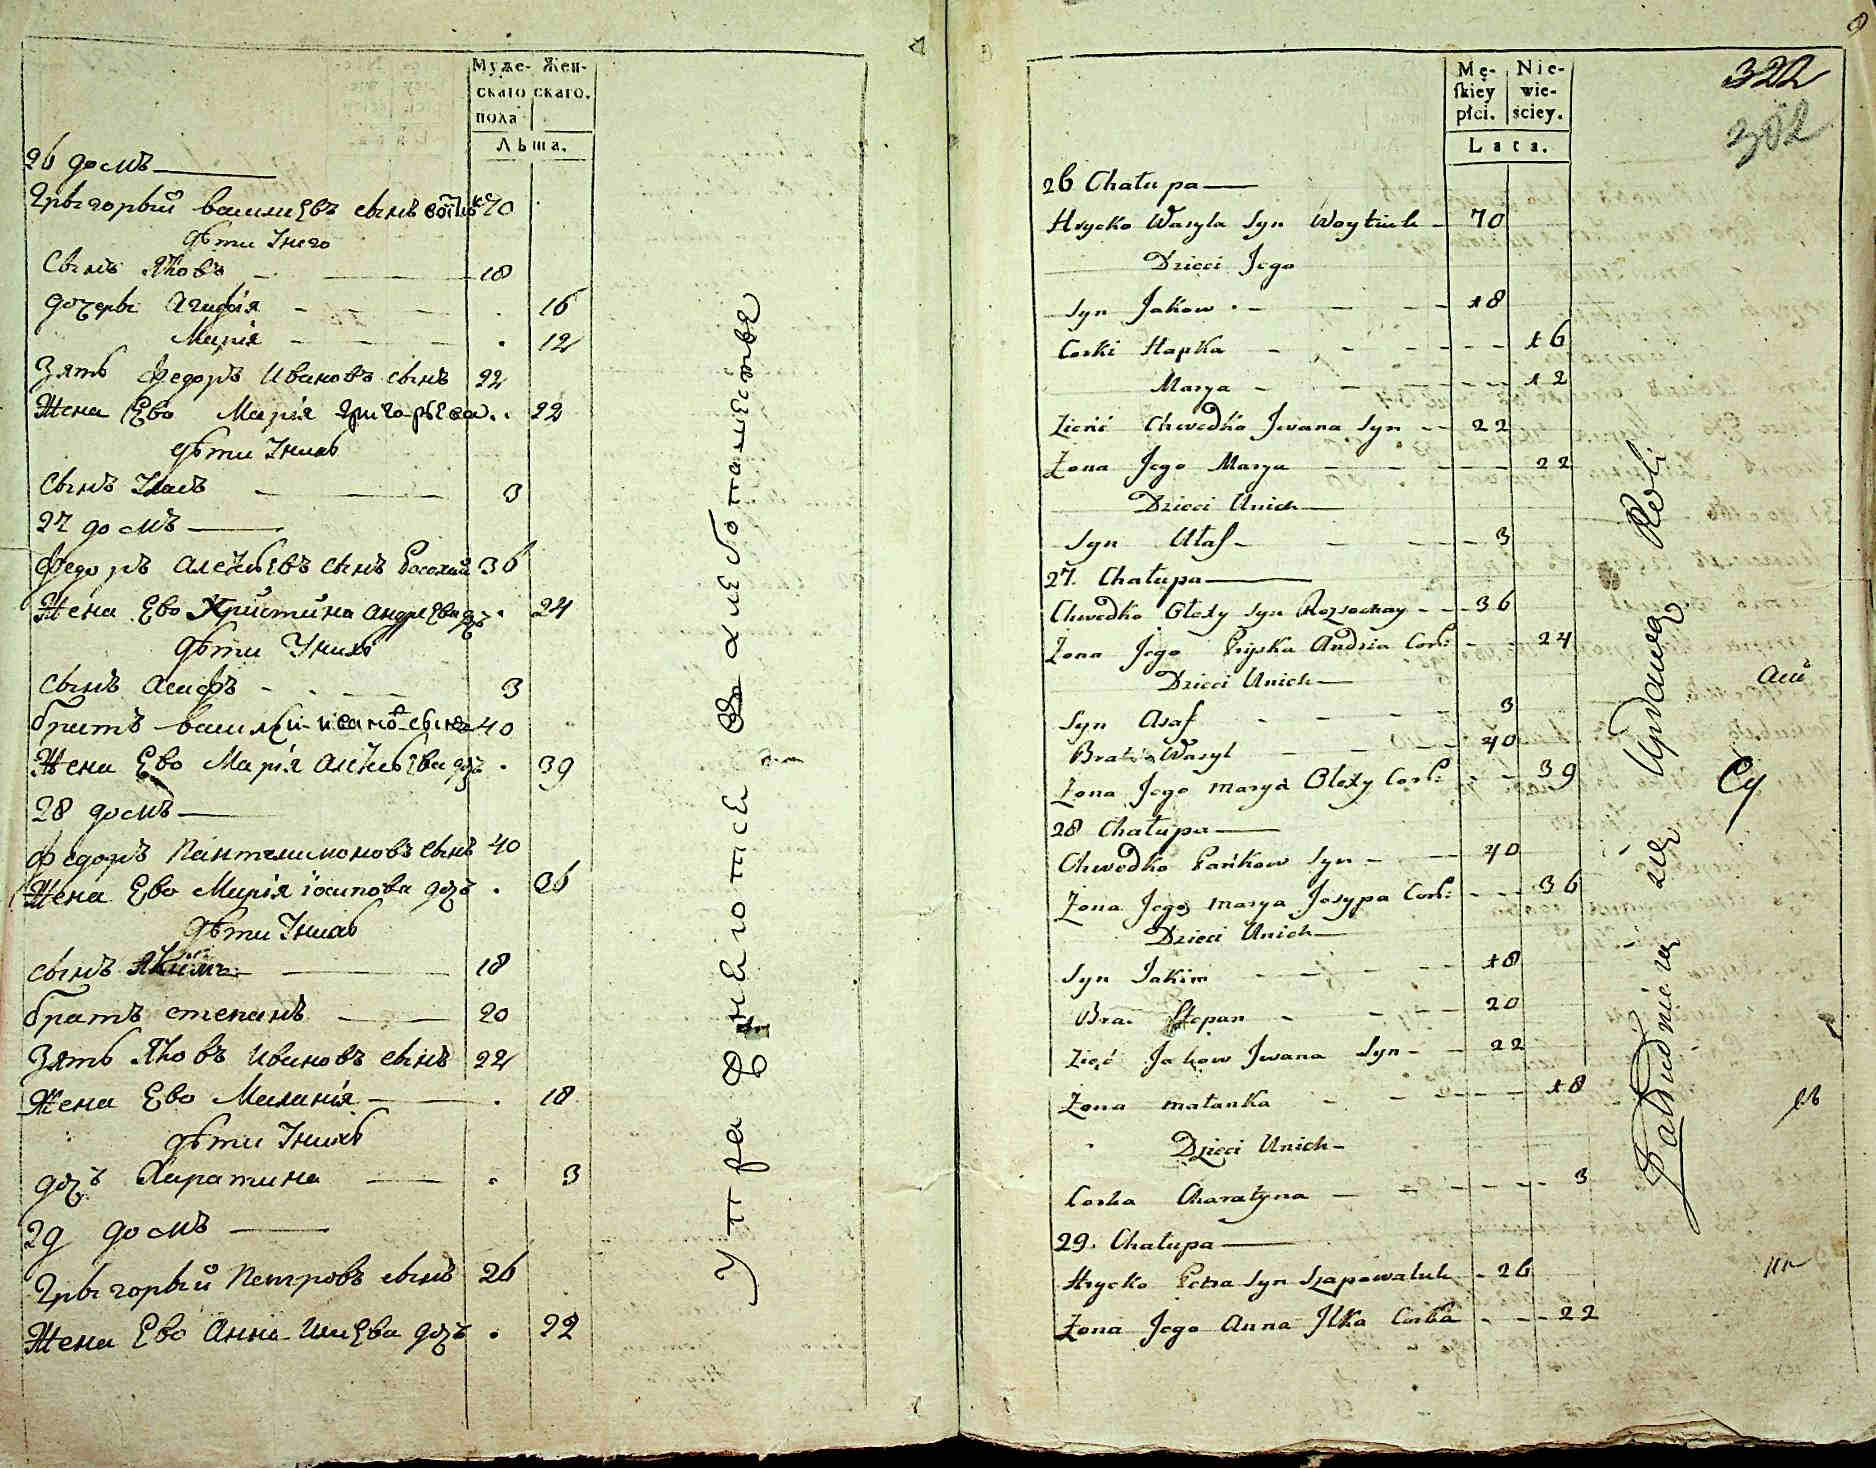 Муже- Жен-
скаго скаго.
пола
Лѣта.
26 домъ
Грыгорый василиевъ сынъ 70
дѣти Унего
Сынъ Яковъ 18
дочеры Агафія 16
Марія 12
Зять Федоръ Ивановъ сынъ 22
Жена Ево Марія григорьева 22
дѣти Унихъ
Сынъ Улас 3
27 домъ
Федоръ Алеѯѣевъ сынъ Росохай 36
Жена Ево Христина андреева дчъ 24
дѣти Унихъ
сынъ Асафъ 3
братъ василей ивановъ сынъ 40
Жена Ево Марія Алеѯѣева дчъ 39
28 домъ
Федоръ Пантелимоновъ сынъ 40
Жена Ево Марія іосипова дочъ 36
дѣти Унихъ
сынъ Якимъ 18
братъ степанъ 20
Зять Яковъ Ивановъ сынъ 22
Жена Ево Маланія 18
дѣти Унихъ
дочъ Харатина 3
29 домъ
Грыгорый Петровъ сынъ 26
Жена Ево Анна Илиева дочъ 22
Упражнеются в хлебопашестве
322
302
Mę- Nie-
ſkiey wie-
płci. ściey.
Lata.
26 Chałupa
Hrycko Wasyla Syn Woytiuk 70
Dzieci Jego
Syn Jakow 18
Corki Hapka 16
Marya 12
Zieńć Chwedko Jwana Syn 22
Żona Jego Marya 22
Dzieci Unich
Syn Ułas 3
27. Chałupa
Chwedko Ołexy Syn Rozsochay 36
Żona Jego Pryska Andria Cork: 24
Dzieci Unich
Syn Asaf 3
Brat Wasyl 40
Żona Jego Marya Ołexy Cork: 39
28 Chałupa
Chwedko Pańkow Syn 40
Żona Jego Marya Josypa Cork: 36
Dzieci Unich
Syn Jakim 18
Bra. Stepan 20
Zięć Jakow Jwana Syn 22
Żona Małanka 18
Dzieci Unich
Corka Charatyna 3
29. Chałupa
Hrycko Petra Syn Szapowaluk 26
Żona Jego Anna Jlka Corka 22
Zatrudnieia się Uprawą Roli